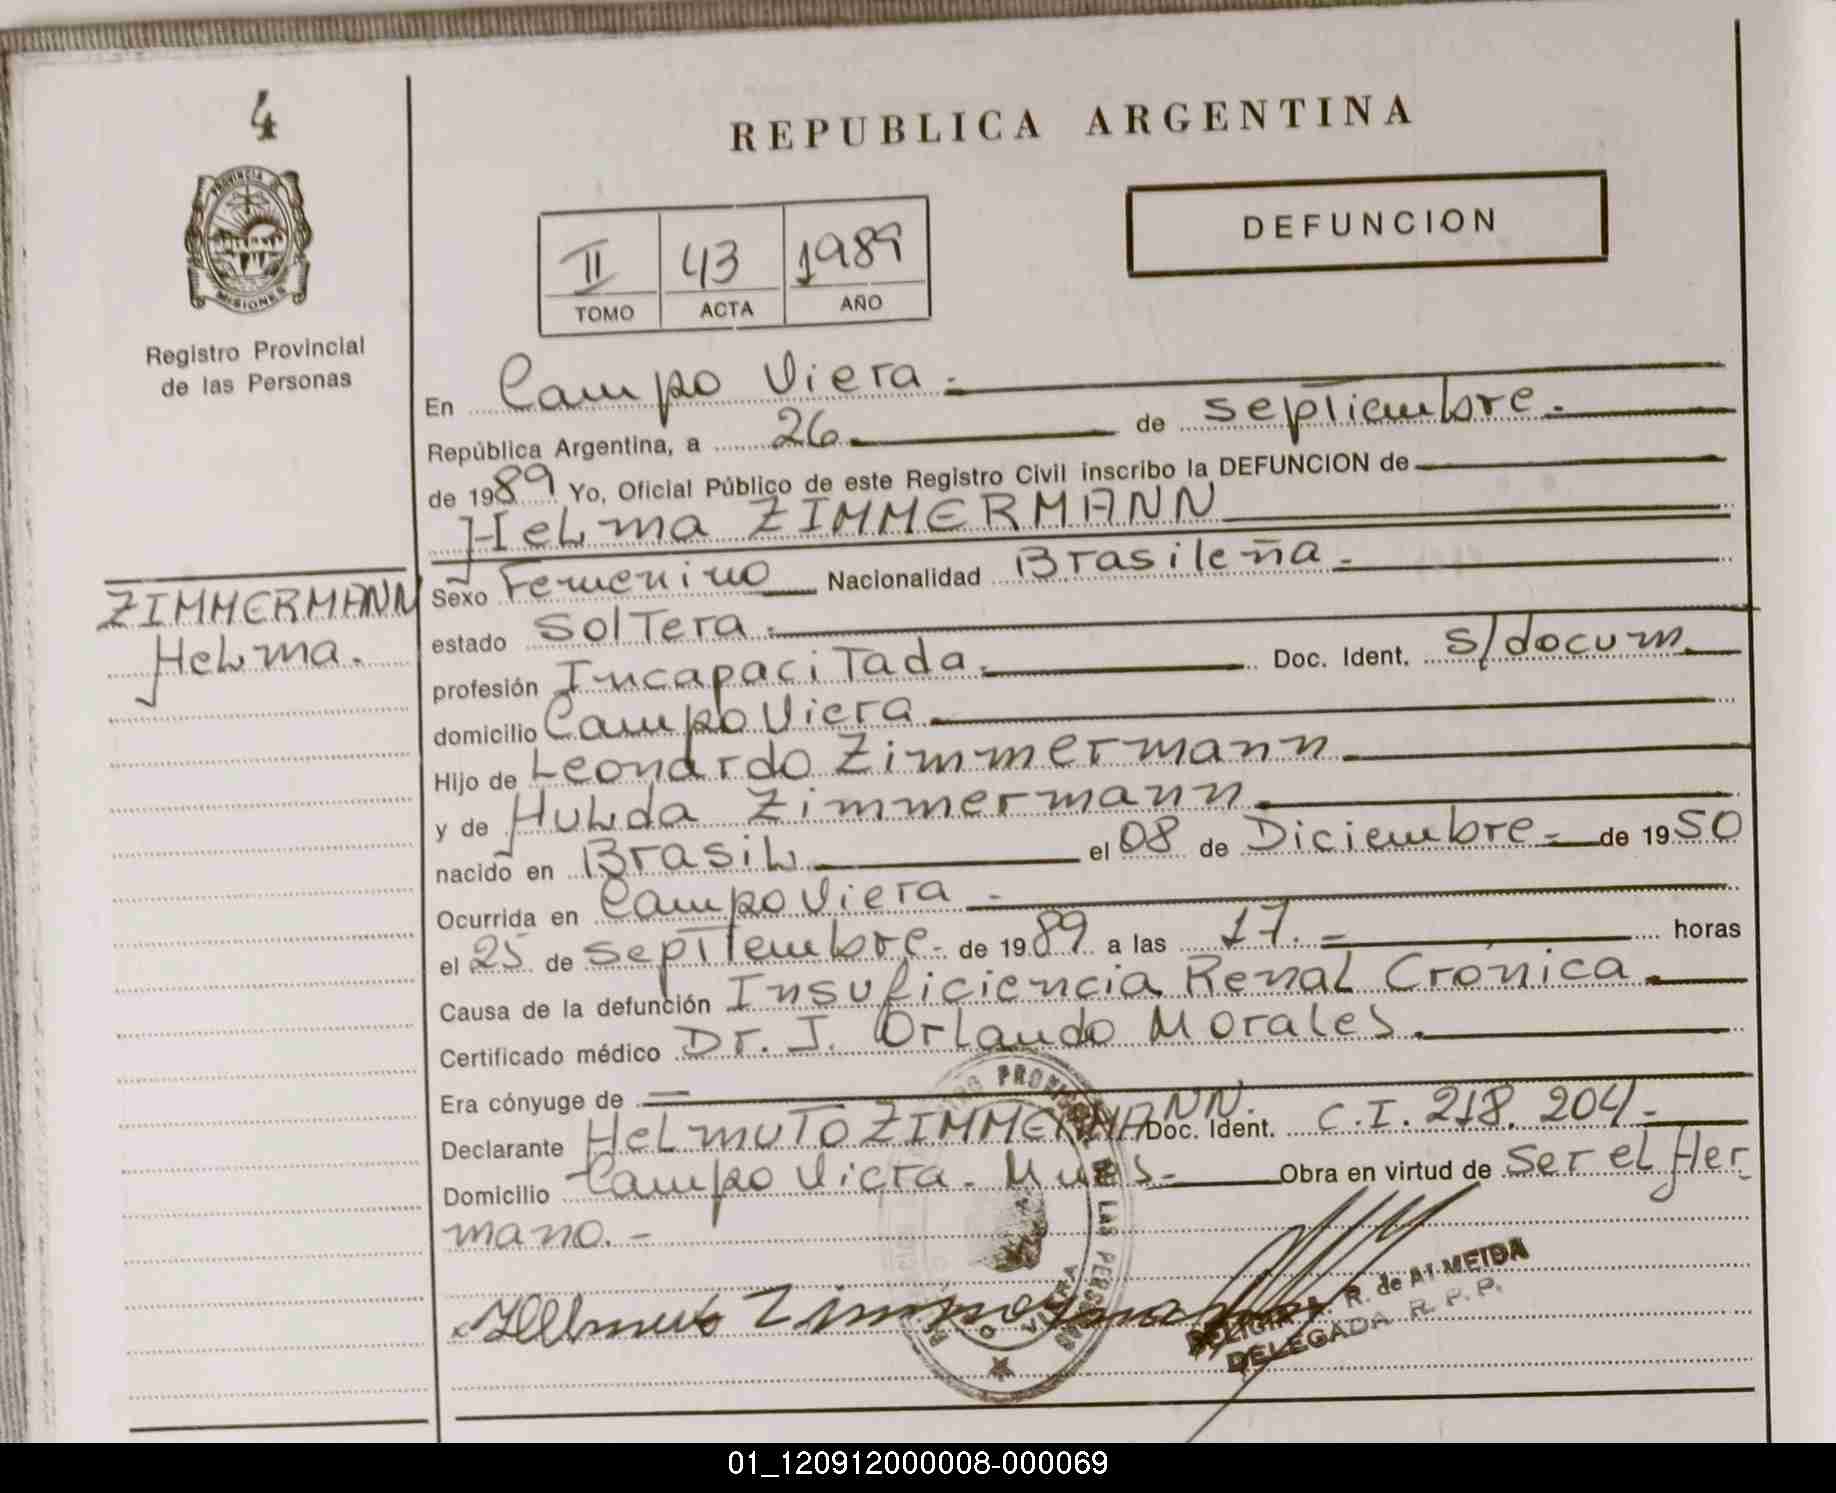 4
REPUBLICA ARGENTINA
PROVINCIA DE
MISIONES
Registro Provincial
de las Personas
II 43 1989
TOMO ACTA AÑO
DEFUNCION
En Campo Viera.=
República Argentina, a 26 de septiembre.-
de 1989 Yo, Oficial Público de este Registro Civil inscribo la DEFUNCION de
Helma ZIMMERMANN
ZIMMERMANN
Helma.
Sexo Femenino Nacionalidad Brasileña.-
estado Soltera.-
profesión Incapacitada. Doc. Ident. s/docum.
domicilio Campo Viera
Hijo de Leonardo Zimmermann
y de Hulda Zimmermann
nacido en Brasil el 08 de Diciembre.- de 1950
Ocurrida en Campo Viera -
el 25 de septiembre.- de 1989 a las 17.- horas
Causa de la defunción Insuficiencia Renal Crónica
Certificado médico Dr. J. Orlando Morales.
Era cónyuge de =
Declarante Helmuto ZIMMERMANN. Doc. Ident. C.I. 218.204.-
Domicilio Campo Viera. Mnes.- Obra en virtud de Ser el Her-
mano.-
Helmuto Zimmermann
R. de ALMEIDA
DELEGADA R. P. P.
01_120912000008-000069